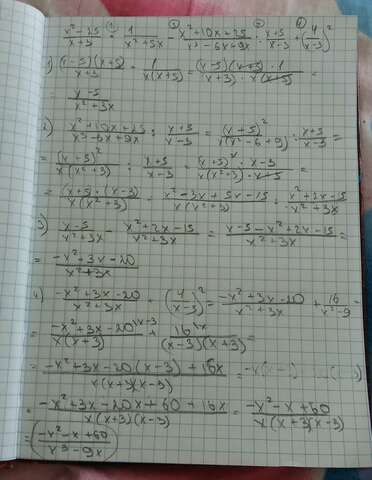 x²-25/x+3 · 1/x²+5x - x²+10x+25/x³-6x+9x : x+5/x-3 + (4/x-3)²
1) (x-5)(x+5)/x+3 · 1/x(x+5) = (x-5)(x+5)·1/(x+3)·x(x+5) =
= x-5/x²+3x
2) x²+10x+25/x³-6x+9x : x+5/x-3 = (x+5)²/x(x²-6+9) : x+5/x-3 =
= (x+5)²/x(x²+3) : x+5/x-3 = (x+5)²·x-3/x(x²+3)·x+5 =
= (x+5)·(x-3)/x(x²+3) = x²-3x+5x-15/x(x²+3) = x²+2x-15/x²+3x
3) x-5/x²+3x - x²+2x-15/x²+3x = x-5-x²+2x-15/x²+3x =
= -x²+3x-20/x²+3x
4) -x²+3x-20/x²+3x + (4/x-3)² = -x²+3x-20/x²+3x + 16/x²-9 =
= -x²+3x-20\x-3/x(x+3) + 16\x/(x-3)(x+3) =
= -x²+3x-20(x-3)+16x/x(x+3)(x-3) =
= -x²+3x-20x+60+16x/x(x+3)(x-3) = -x²-x+60/x(x+3)(x-3)
= (-x²-x+60/x³-9x)